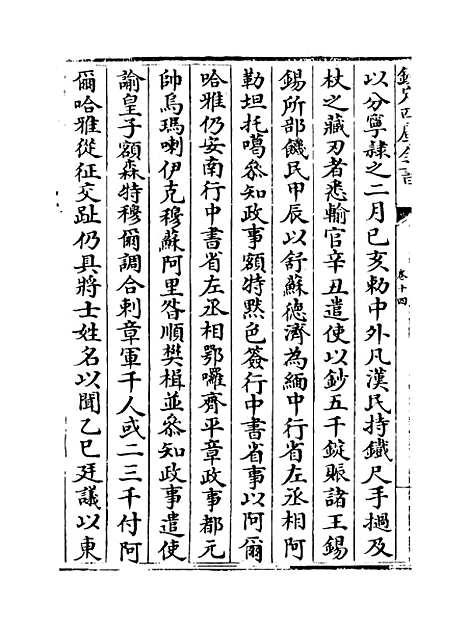 欽定四庫全書
卷十四
以分寧隸之二月己亥勅中外凡漢民持鐵尺手撾及
杖之藏刃者悉輸官辛丑遣使以鈔五千錠賑諸王錫
錫所部饑民甲辰以舒蘇德濟為緬中行省左丞相阿
勒坦托噶叅知政事額特黙色簽行中書省事以阿爾
哈雅仍安南行中書省左丞相鄂囉齊平章政事都元
帥烏瑪喇伊克穆蘇阿里昝順樊楫並叅知政事遣使
諭皇子額森特穆爾調合剌章軍千人或二三千付阿
爾哈雅從征交趾仍具將士姓名以聞乙巳廷議以東